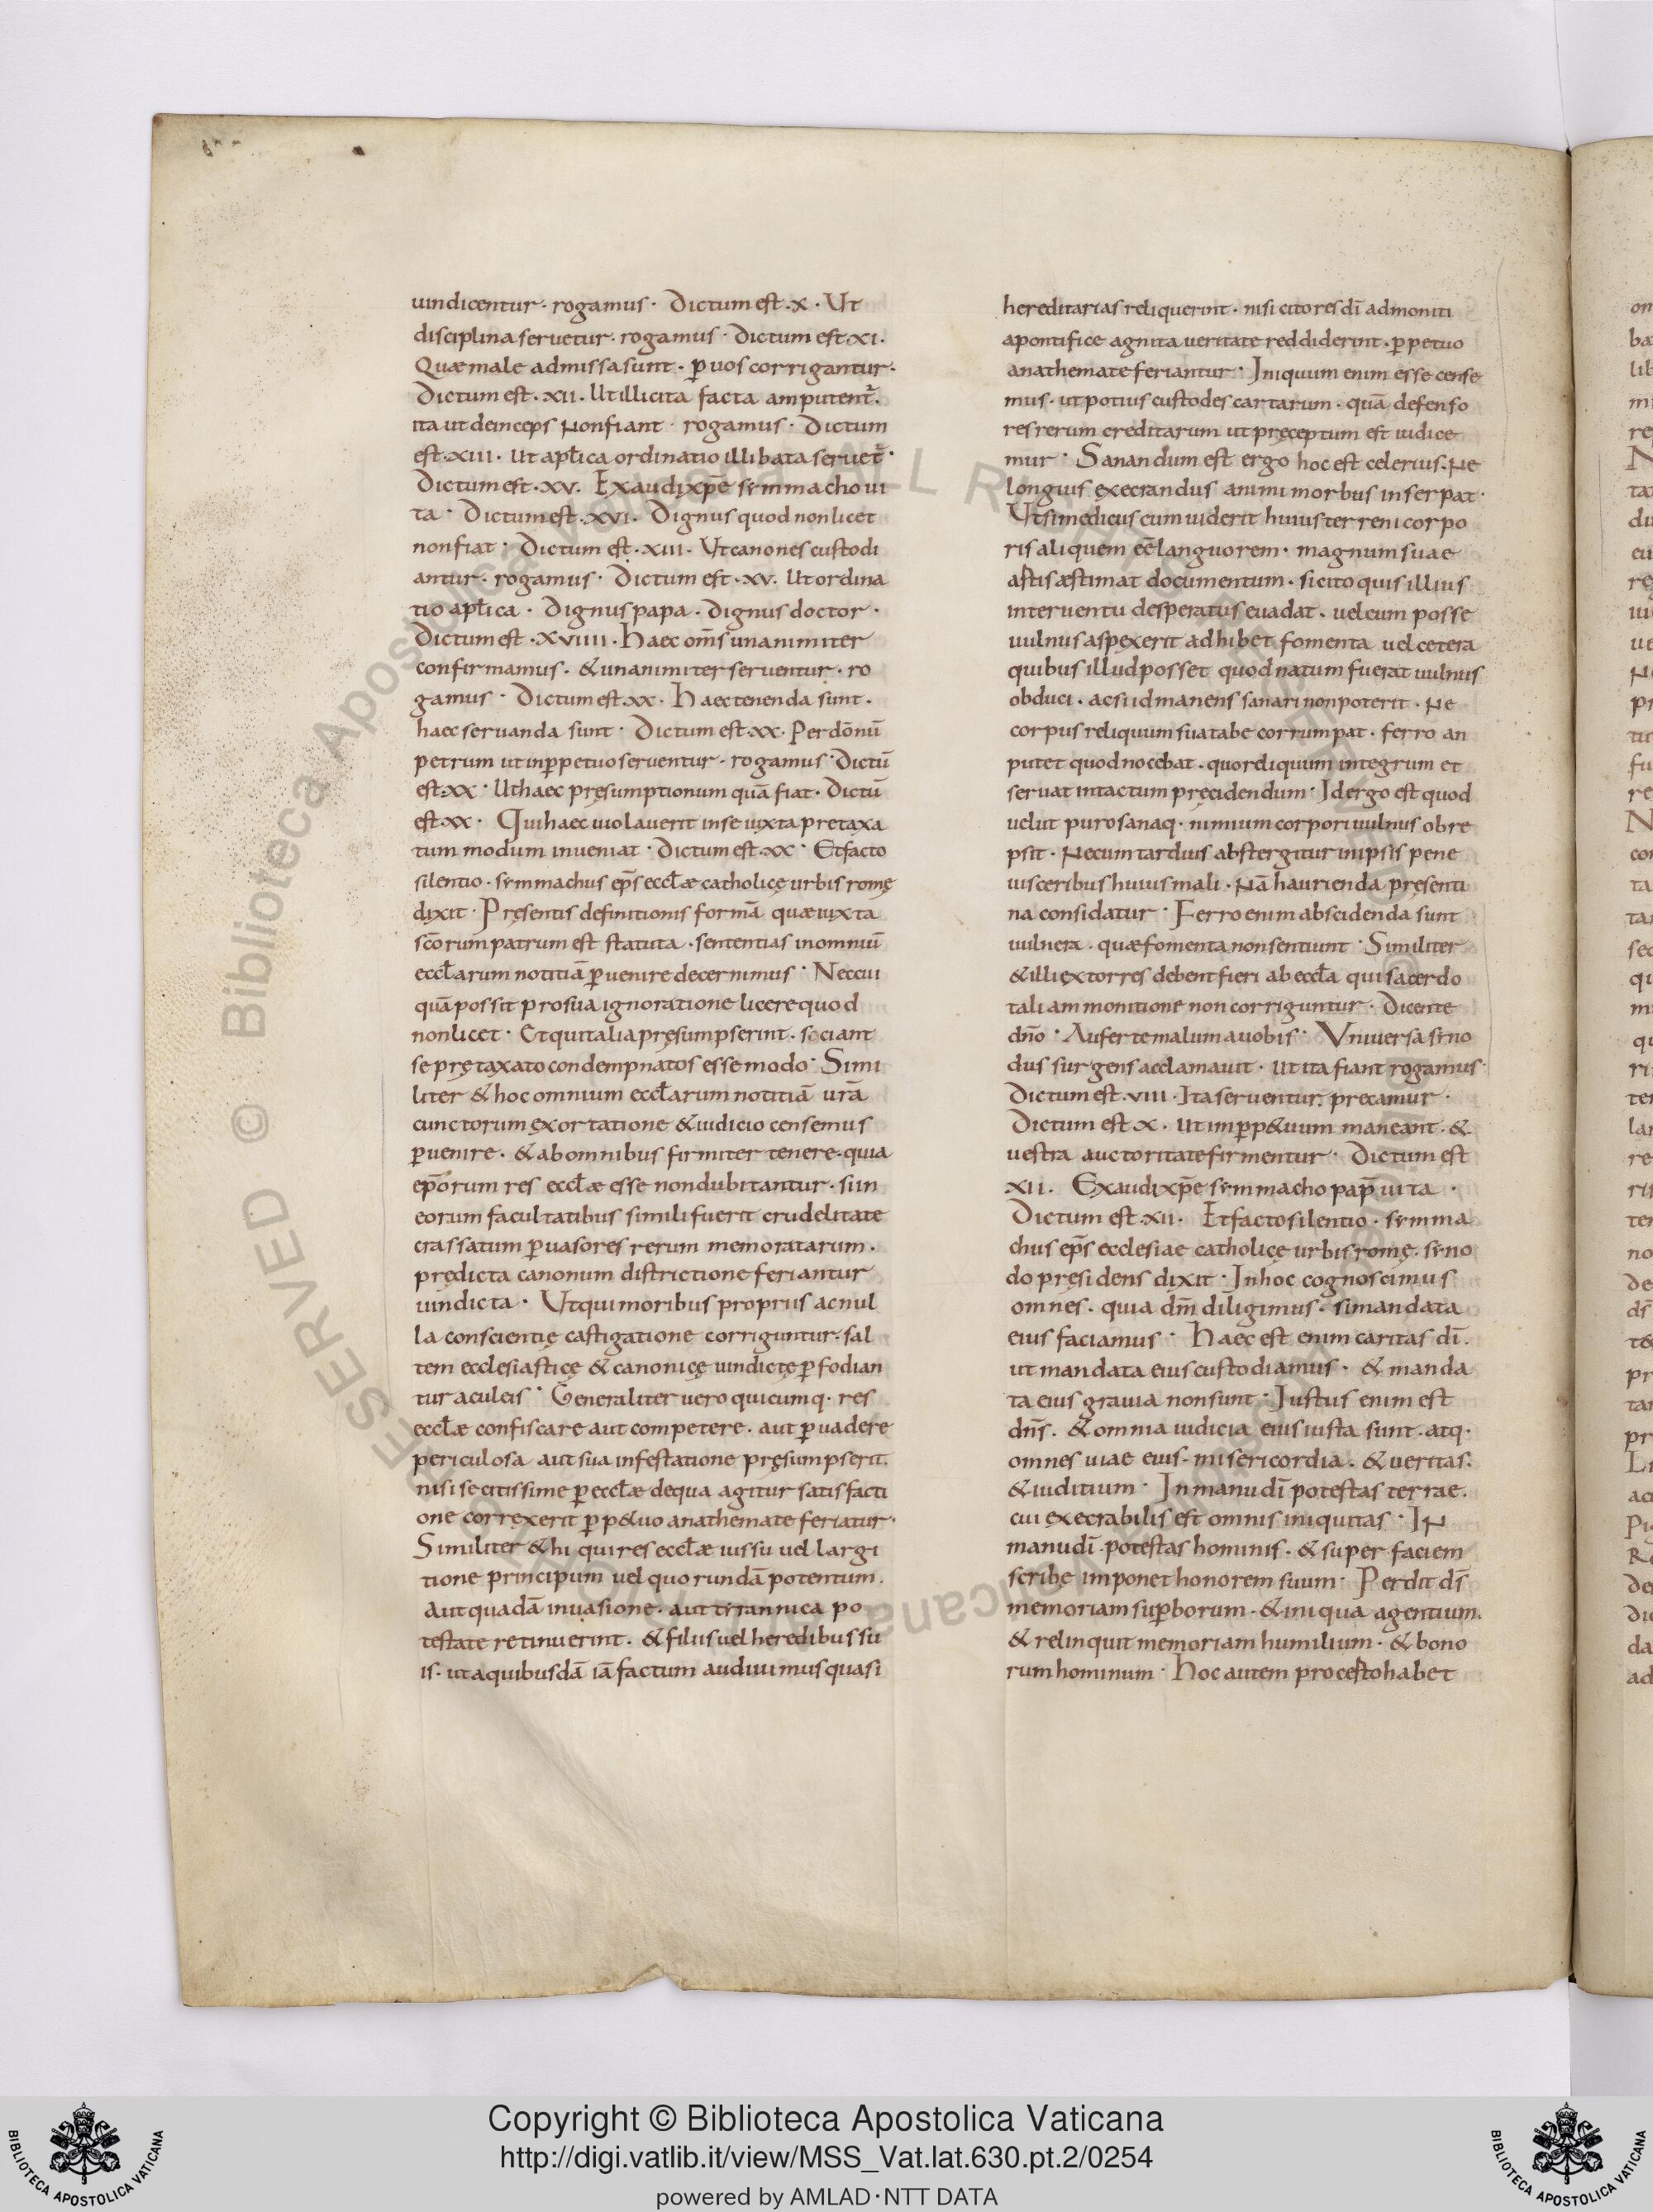 uindicentur· rogamus· Dictum est·x· Ut
disciplina seruetur· rogamus· Dictum est·xi·
Quae male admissa sunt· p̄ uos corrigantur·
Dictum est·xii· Ut illicita facta amputent᷑·
ita ut deinceps non fiant· rogamus· Dictum
est·xiii· Ut apl̄ica ordinatio illibata seruet᷑·
Dictum est·xv· Exaudi xp̄e symmacho ui
ta· Dictum est·xvi· Dignus quod non licet
non fiat· Dictum est·xiii· Ut canones custodi
antur· rogamus· Dictum est·xv· Ut ordina
tio apl̄ica· Dignus papa· dignus doctor·
Dictum est·xviiii· Haec om̄s unanimiter
confirmamus· & unanimiter seruentur· ro
gamus· Dictum est·xx· Haec tenenda sunt·
haec seruanda sunt· Dictum est·xx· Per dōnū
petrum ut in p̄petuo seruentur· rogamus· Dictū
est·xx· Ut haec pręsumptionum quā fiat· Dictū
est·xx· Qui haec uiolauerit in se iuxta pretaxa
tum modum inueniat· Dictum est·xx· Et facto
silentio· symmachus ep̄s eccl̄æ catholicę urbis romę
dixit· Pręsentis definitionis formā quæ iuxta
sc̄orum patrum est statuta· sententias in omniū
eccl̄arum notitiā p̄uenire decernimus· Nec cui
quā possit pro sua ignoratione licere quod
non licet· Et qui talia pręsumpserint· sciant
se prętaxato condempnatos esse modo· Simi
liter & hoc omnium eccl̄arum notitiā ur̄a
cunctorum exortatione & iudicio censemus
p̄uenire· & ab omnibus firmiter tenere· quia
ep̄orum res eccl̄æ esse non dubitantur· si in
eorum facultatibus simili fuerit crudelitate
crassatum p̄uasores rerum memoratarum·
prędicta canonum districtione feriantur
uindicta· Ut qui moribus propriis ac nul
la conscientię castigatione corriguntur· sal
tem ecclesiasticę & canonicę uindictę p̄fodian
tur aculeis· Generaliter uero quicumq· res
eccl̄æ confiscare aut competere· aut p̄uadere
periculosa aut sua infestatione pręsumpserit·
nisi se citissime p̄ eccl̄æ de qua agitur satisfacti
one correxerit p̄p&uo anathemate feriatur·
Similiter & hi qui res eccl̄æ iussu uel largi
tione principum uel quorundā potentum·
aut quadā inuasione· aut tyrannica po
testate retinuerint· & filiis uel heredibus su
is· ut a quibusdā iā factum audiuimus quasi
hereditarias reliquerint· nisi cito res dī admoniti
a pontifice agnita ueritate reddiderint· p̄petuo
anathemate feriantur· Iniquum enim esse cense
mus· ut potius custodes cartarum· quā defenso
res rerum creditarum ut pręceptum est iudice
mur· Sanandum est ergo hoc est celerius· Ne
longius execrandus animi morbus inserpat·
Ut si medicus cum uiderit huius terreni corpo
ris aliquem eē languorem· magnum suae
astis æstimat documentum· si cito quis illius
interuentu desperatus euadat· uel cum posse
uulnus aspexerit adhibet fomenta uel cetera
quibus illud posset quod natum fuerat uulnus
obduci· ac si id manens sanari non poterit· Ne
corpus reliquum sua tabe corrumpat· ferro an
putet quod nocebat· quo reliquum integrum et
seruat intactum pręcidendum· Id ergo est quod
uelut puro sanaq· nimium corpori uulnus obre
psit· Nec cum tardius abstergitur in ipsis pene
uisceribus huius mali· Nā haurienda pręsenti
na considatur· Ferro enim abscidenda sunt
uulnera· quæ fomenta non sentiunt· Similiter
& illi extorres debent fieri ab eccl̄a qui sacerdo
tali ammonitione non corriguntur· Dicente
dn̄o· Auferte malum a uobis· Uniuersa syno
dus surgens acclamauit· Ut ita fiant rogamus·
Dictum est·viii· Ita seruentur· precamur·
Dictum est·x· Ut in p̄p&uum maneant· &
uestra auctoritate firmentur· Dictum est
xii· Exaudi xp̄e symmacho pap̄ uita·
Dictum est·xii· Et facto silentio· symma
chus ep̄s ecclesiae catholicę urbis romę· syno
do pręsidens dixit· In hoc cognoscimus
omnes· quia dm̄ diligimus· si mandata
eius faciamus· Haec est enim caritas dī·
ut mandata eius custodiamus· & manda
ta eius grauia non sunt· Iustus enim est
dn̄s· & omnia iudicia eius iusta sunt· atq·
omnes uiae eius· misericordia· & ueritas·
& iuditium· In manu dī potestas terrae·
cui execrabilis est omnis iniquitas· In
manu dī potestas hominis· & super faciem
scribę imponet honorem suum· Perdit dī̄s
memoriam sup̄borum· & iniqua agentium·
& relinquit memoriam humilium· & bono
rum hominum· Hoc autem pro cęsto habet
Copyright © Biblioteca Apostolica Vaticana
http://digi.vatlib.it/view/MSS_Vat.lat.630.pt.2/0254
powered by AMLAD·NTT DATA
BIBLIOTECA APOSTOLICA VATICANA
BIBLIOTECA APOSTOLICA VATICANA